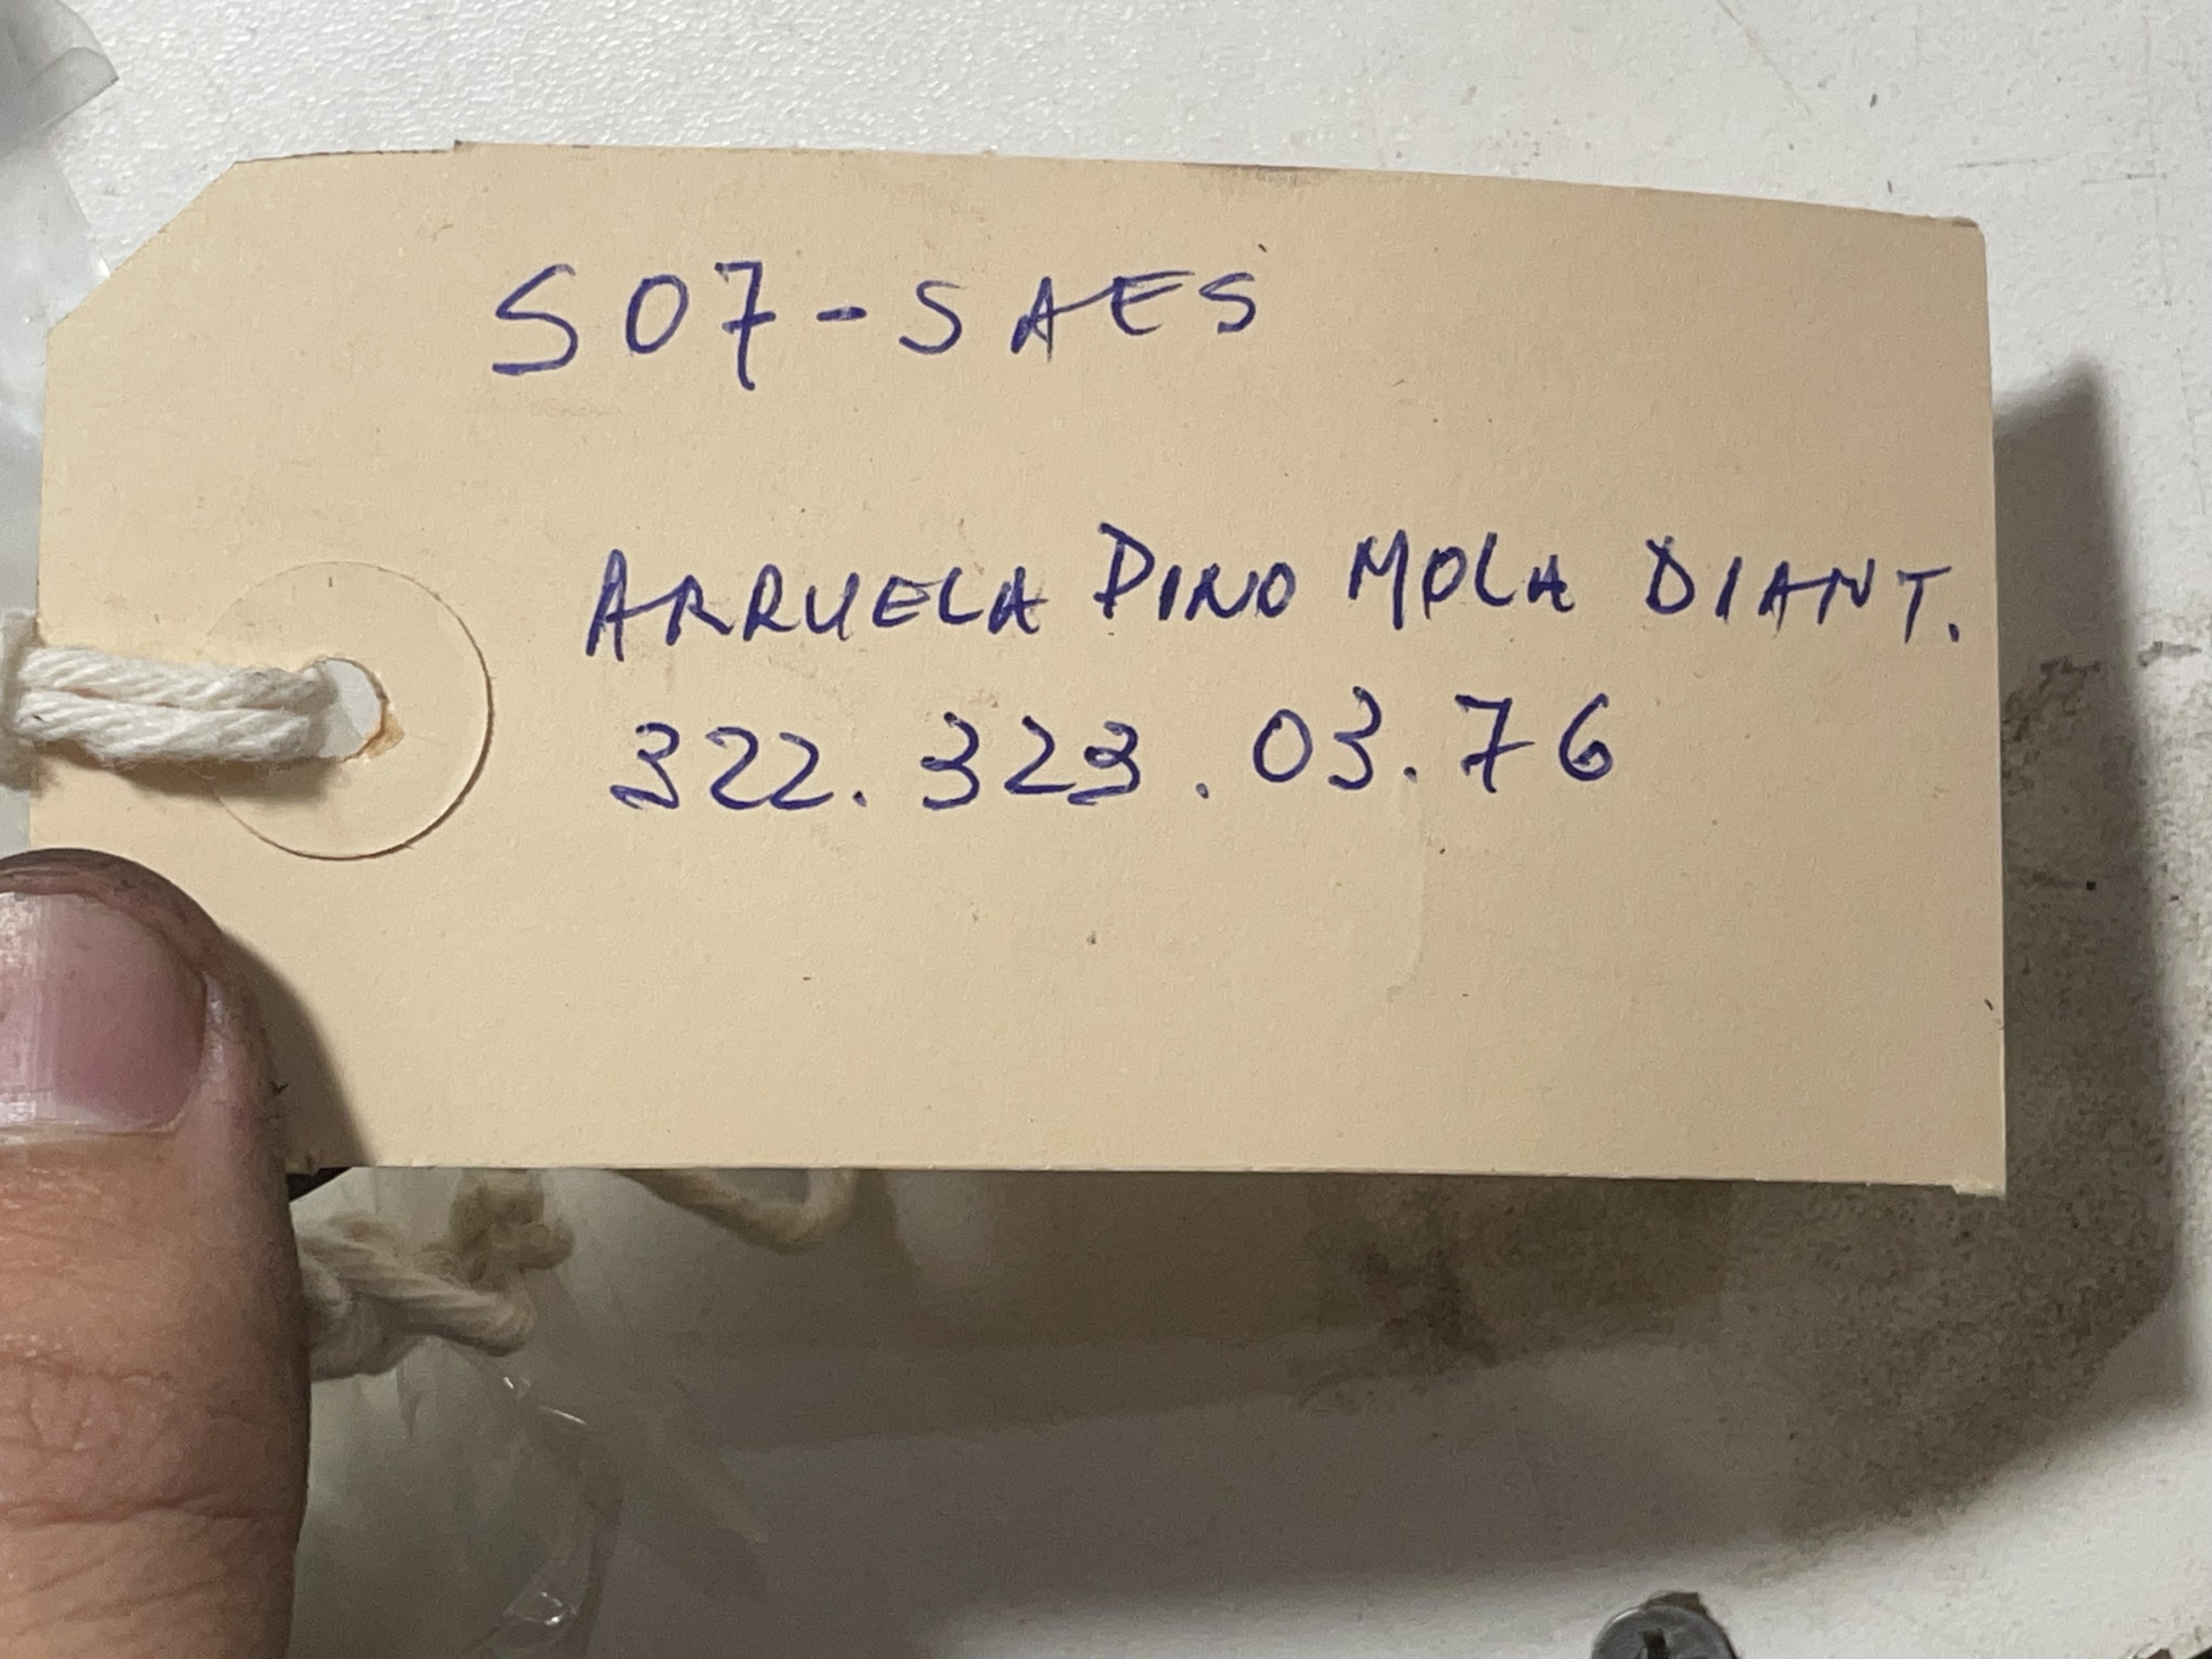 507-SAES
ARRUELA PINO MOLA DIANT.
322.323.03.76